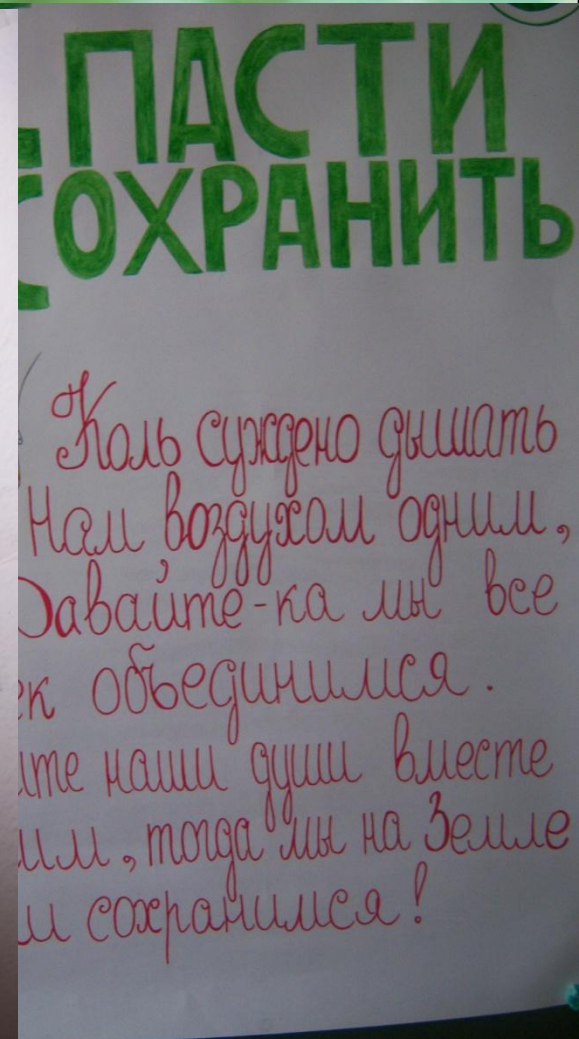 СПАСТИ
СОХРАНИТЬ
Коль суждено дышать
Нам воздухом одним,
Давайте-ка мы все
объединимся.
наши души вместе
тогда мы на Земле
сохранимся!